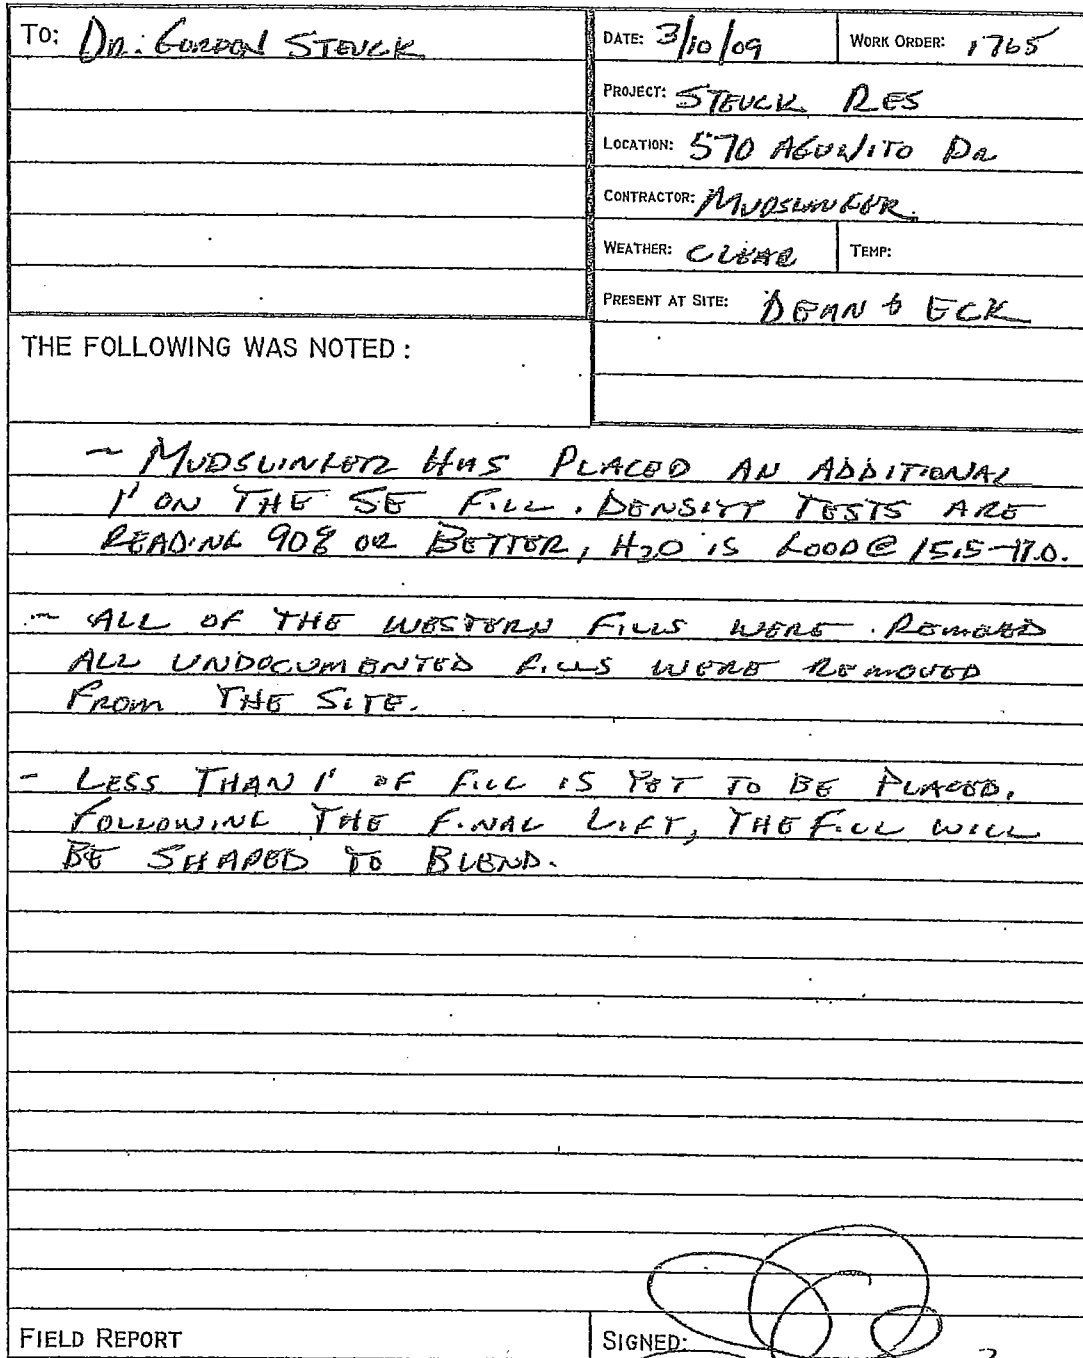 TO: DR. GORDON STEUCK
DATE: 3/10/09
WORK ORDER: 1765
PROJECT: STEUCK RES
LOCATION: 570 AGUAJITO DR
CONTRACTOR: MUDSLINGER.
WEATHER: CLEAR
TEMP:
PRESENT AT SITE: DEAN & ECK
THE FOLLOWING WAS NOTED:
~ MUDSLINGER HAS PLACED AN ADDITIONAL
1' ON THE SE FILL. DENSITY TESTS ARE
READING 90% OR BETTER, H2O IS GOOD @ 15.5-17.0.
- ALL OF THE WESTERN FILLS WERE REMOVED
ALL UNDOCUMENTED FILLS WERE REMOVED
FROM THE SITE.
- LESS THAN 1' OF FILL IS YET TO BE PLACED.
FOLLOWING THE FINAL LIFT, THE FILL WILL
BE SHAPED TO BLEND.
FIELD REPORT
SIGNED: